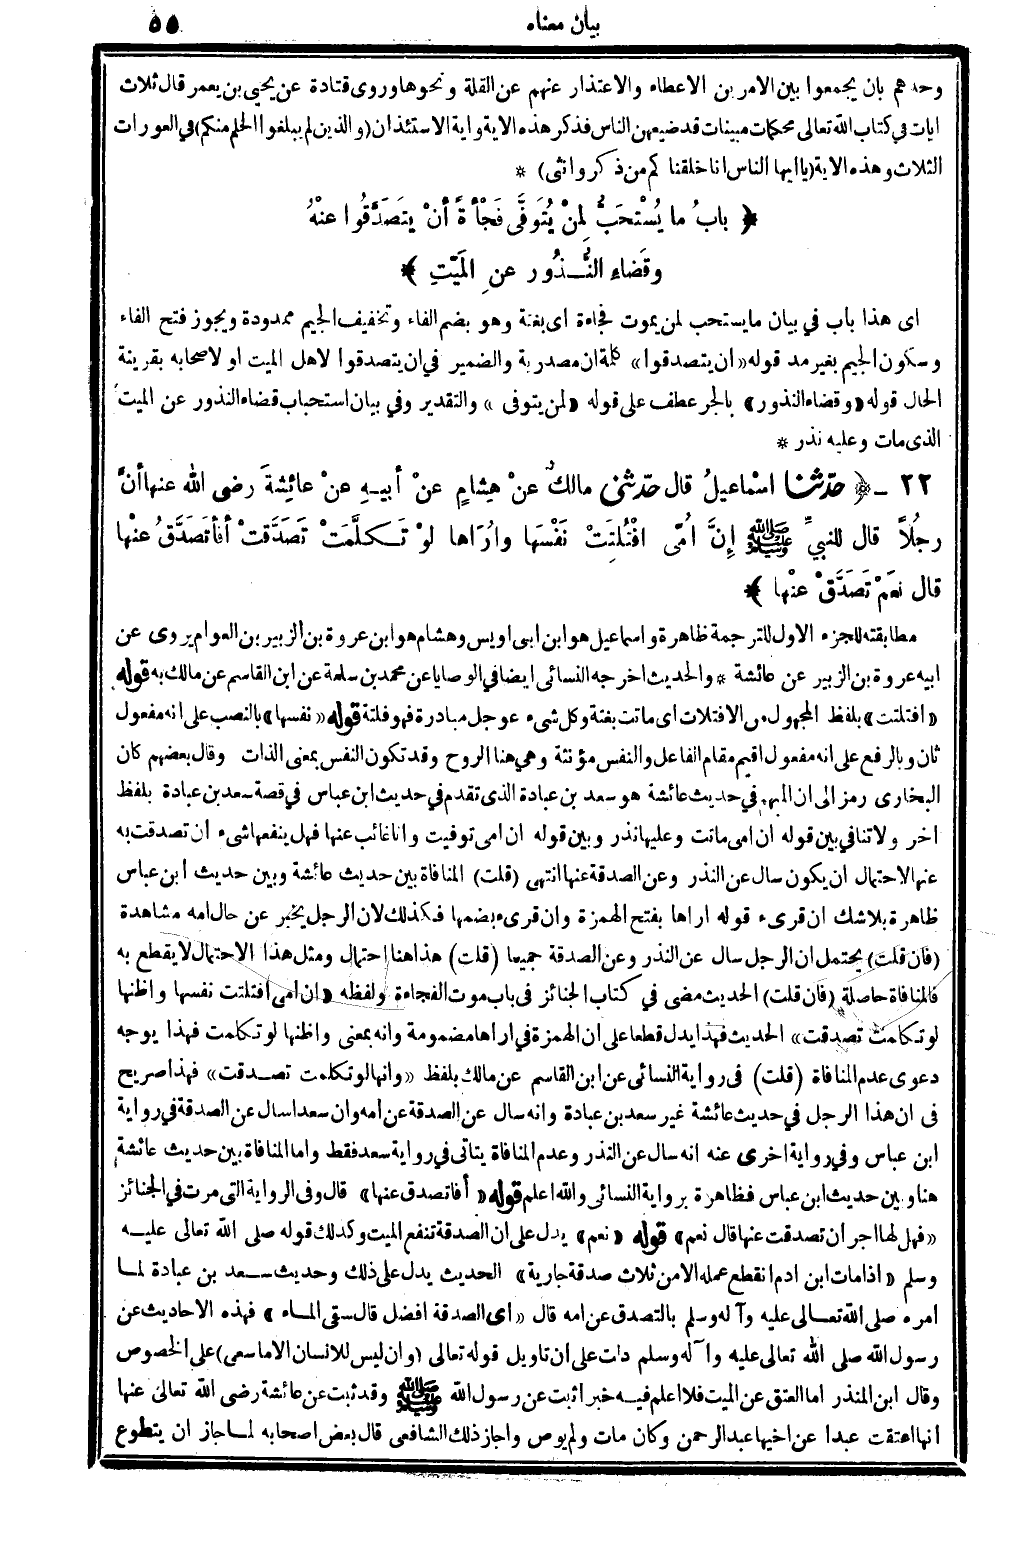 بيان معناه ٥٥
وحدهم بان يجمعوا بين الامرين الاعطاء والاعتذار عنهم عن القلة ونحوها وروى قتادة عن يحيى بن يعمر قال ثلاث
ايات في كتاب الله تعالى محكمات مبينات قد ضيعهن الناس فذكر هذه الاية واية الاستئذان (والذين لم يبلغوا الحلم منكم) في العورات
الثلاث وهذه الاية (يا ايها الناس انا خلقناكم من ذكر وانثى) *
﴿ بابُ ما يُسْتَحَبُّ لِمَنْ يُتَوَفَّى فَجْأَةً أنْ يَتَصَدَّقُوا عنْهُ
وقَضاءِ النُّذُورِ عنِ المَيِّتِ ﴾
اى هذا باب في بيان ما يستحب لمن يموت فجاءة اى بغتة وهو بضم الفاء وتخفيف الجيم ممدودة ويجوز فتح الفاء
وسكون الجيم بغير مد قوله «ان يتصدقوا» كلمة ان مصدرية والضمير في ان يتصدقوا لاهل الميت او لاصحابه بقرينة
الحال قوله «وقضاء النذور» بالجر عطف على قوله «لمن يتوفى» والتقدير وفي بيان استحباب قضاء النذور عن الميت
الذى مات وعليه نذر *
٢٢ ـ ﴿ حدَّثنا اسْماعيلُ قال حدّثنى مالكٌ عنْ هِشامٍ عنْ أبيهِ عنْ عائِشةَ رضى الله عنها أنَّ
رجُلاً قال للنبيِّ ﷺ إنَّ اُمِّى افْتُلِتَتْ نَفْسَها واُرَاها لوْ تَكلَّمَتْ تَصَدَّقتْ أفأتَصَدَّقُ عنْها
قال نعَمْ تَصَدَّقْ عنْها ﴾
مطابقته للجزء الاول للترجمة ظاهرة واسماعيل هو ابن ابى اويس وهشام هو ابن عروة بن الزبير بن العوام يروى عن
ابيه عروة بن الزبير عن عائشة * والحديث اخرجه النسائى ايضا في الوصايا عن محمد بن سلمة عن ابن القاسم عن مالك به قوله
«افتلتت» بلفظ المجهول من الافتلات اى ماتت بغتة وكل شىء عوجل مبادرة فهو فلتة قوله «نفسها» بالنصب على انه مفعول
ثان وبالرفع على انه مفعول اقيم مقام الفاعل والنفس مؤنثة وهي هنا الروح وقد تكون النفس بمعنى الذات وقال بعضهم كان
البخارى رمز الى ان المبهم في حديث عائشة هو سعد بن عبادة الذى تقدم في حديث ابن عباس في قصة سعد بن عبادة بلفظ
اخر ولا تنافي بين قوله ان امى ماتت وعليها نذر وبين قوله ان امى توفيت وانا غائب عنها فهل ينفعها شىء ان تصدقت به
عنها لاحتمال ان يكون سال عن النذر وعن الصدقة عنها انتهى (قلت) المنافاة بين حديث عائشة وبين حديث ابن عباس
ظاهرة بلا شك ان قرىء قوله اراها بفتح الهمزة وان قرىء بضمها فكذلك لان الرجل يخبر عن حال امه مشاهدة
(فان قلت) يحتمل ان الرجل سال عن النذر وعن الصدقة جميعا (قلت) هذا هنا احتمال ومثل هذا الاحتمال لا يقطع به
فالمنافاة حاصلة (فان قلت) الحديث مضى في كتاب الجنائز في باب موت الفجاءة ولفظه «ان امى افتلتت نفسها واظنها
لو تكلمت تصدقت» الحديث فهذا يدل قطعا على ان الهمزة في اراها مضمومة وانه بمعنى واظنها لو تكلمت فهذا يوجه
دعوى عدم المنافاة (قلت) فى رواية النسائى عن ابن القاسم عن مالك بلفظ «وانها لو تكلمت تصدقت» فهذا صريح
فى ان هذا الرجل في حديث عائشة غير سعد بن عبادة وانه سال عن الصدقة عن امه وان سعدا سال عن الصدقة في رواية
ابن عباس وفي رواية اخرى عنه انه سال عن النذر وعدم المنافاة يتاتى في رواية سعد فقط واما المنافاة بين حديث عائشة
هنا وبين حديث ابن عباس فظاهرة برواية النسائى والله اعلم قوله «أفاتصدق عنها» قال وفى الرواية التى مرت في الجنائز
«فهل لها اجر ان تصدقت عنها قال نعم» قوله «نعم» يدل على ان الصدقة تنفع الميت وكذلك قوله صلى الله تعالى عليه
وسلم «اذا مات ابن ادم انقطع عمله الا من ثلاث صدقة جارية» الحديث يدل على ذلك وحديث سعد بن عبادة لما
امره صلى الله تعالى عليه وآله وسلم بالتصدق عن امه قال «اى الصدقة افضل قال سقى الماء» فهذه الاحاديث عن
رسول الله صلى الله تعالى عليه وآله وسلم دلت على ان تاويل قوله تعالى (وان ليس للانسان الا ما سعى) على الخصوص
وقال ابن المنذر اما العتق عن الميت فلا اعلم فيه خبرا ثبت عن رسول الله ﷺ وقد ثبت عن عائشة رضى الله تعالى عنها
انها اعتقت عبدا عن اخيها عبد الرحمن وكان مات ولم يوص واجاز ذلك الشافعى قال بعض اصحابه لما جاز ان يتطوع